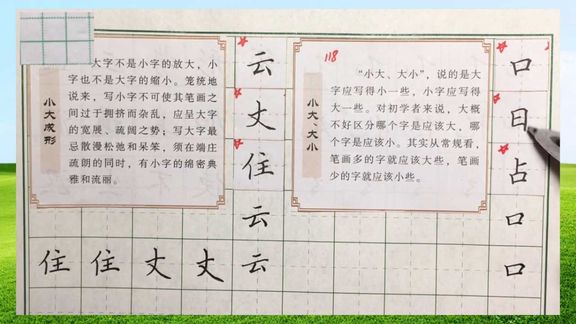 小大成形
大字不是小字的放大，小
字也不是大字的缩小。笼统地
说来，写小字不可使其笔画之
间过于拥挤而杂乱，应呈大字
的宽展、疏阔之势；写大字最
忌散漫松弛和呆笨，须在端庄
疏朗的同时，有小字的绵密典
雅和流丽。
云
丈
住
云
云
118
小大、大小
“小大、大小”，说的是大
字应写得小一些，小字应写得
大一些。对初学者来说，大概
不好区分哪个字是应该大，哪
个字是应该小。其实从常规看，
笔画多的字就应该大些，笔画
少的字就应该小些。
口
日
占
口
口
住 住 丈 丈